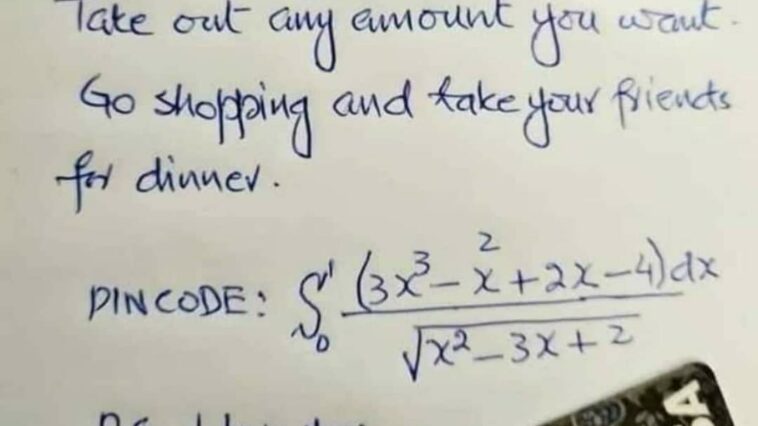 Take out any amount you want.
Go shopping and take your friends
for dinner.
PINCODE: ∫₀¹ (3x³ - x² + 2x - 4)dx / √(x² - 3x + 2)